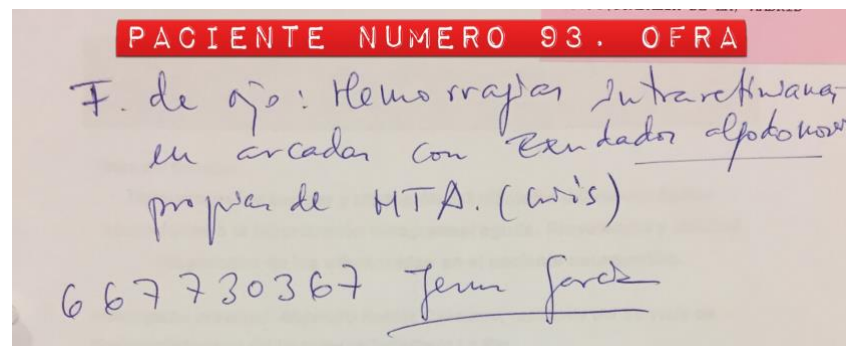 PACIENTE NUMERO 93. OFRA
F. de ojo: Hemorragias intraretinianas
en arcadas con exudados algodonosos
propias de MTA. (crisis)
667730367